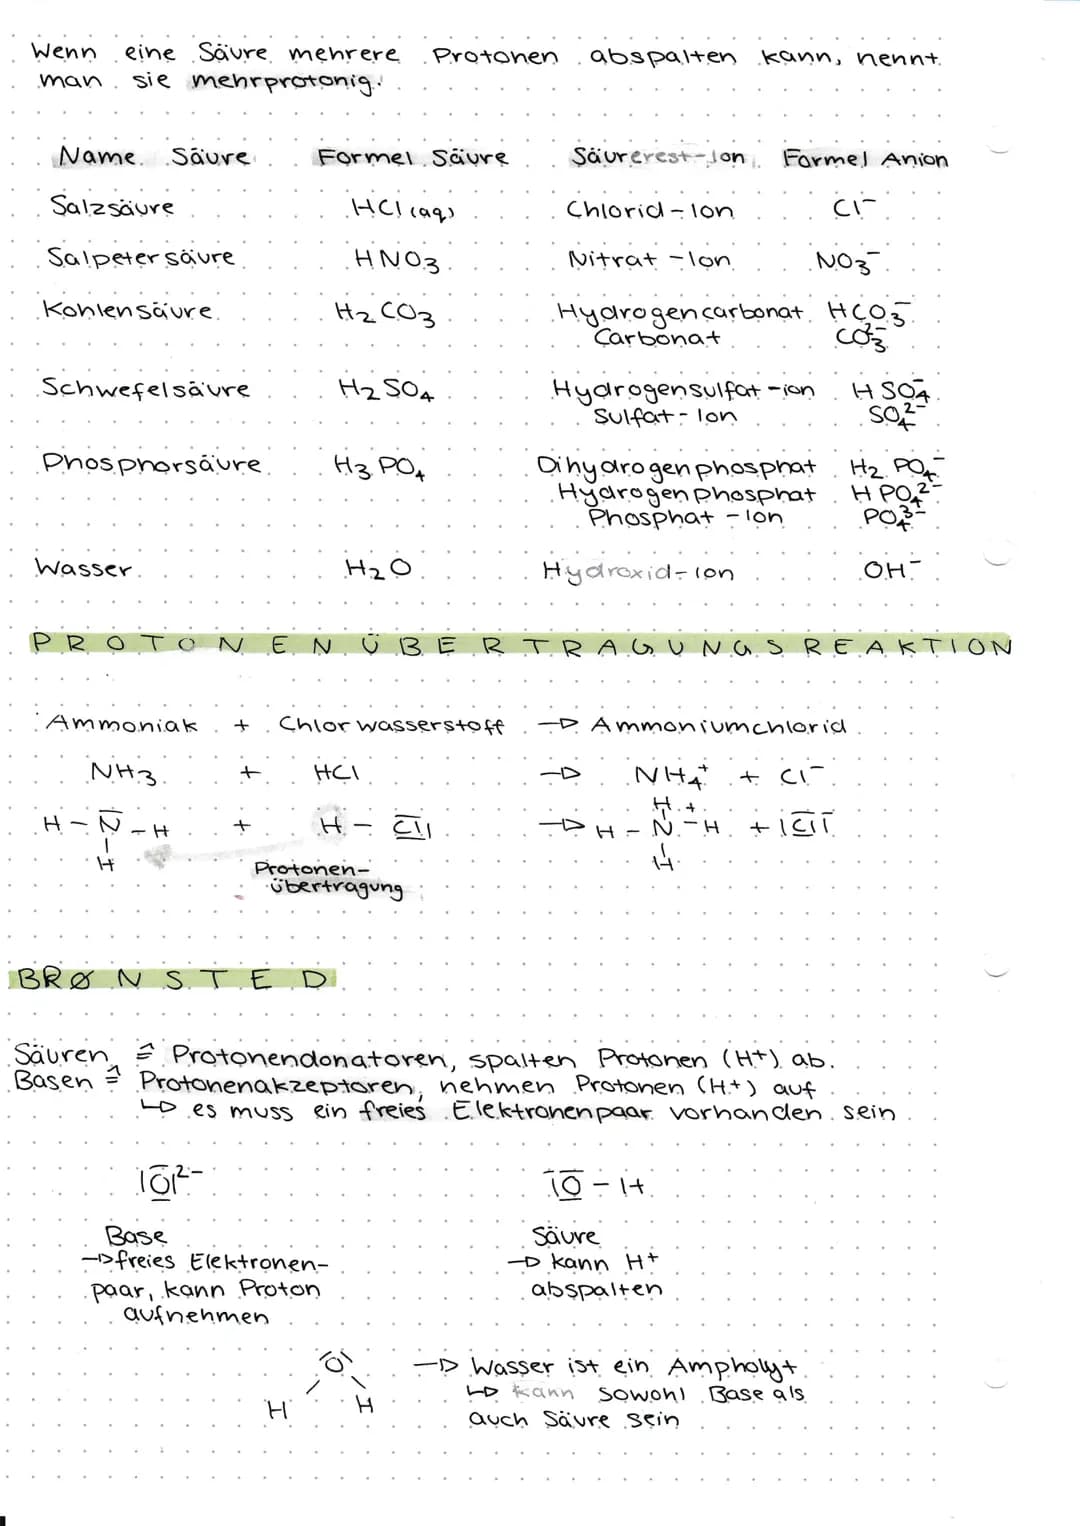 Wenn eine Säure mehrere Protonen abspalten kann, nennt
man sie mehrprotonig.
Name Säure Formel Säure Säurerest-Ion Formel Anion
Salzsäure HCl (aq) Chlorid-Ion Cl⁻
Salpetersäure HNO₃ Nitrat-Ion NO₃⁻
Kohlensäure H₂CO₃ Hydrogencarbonat HCO₃⁻
Carbonat CO₃²⁻
Schwefelsäure H₂SO₄ Hydrogensulfat-ion HSO₄⁻
Sulfat-Ion SO₄²⁻
Phosphorsäure H₃PO₄ Dihydrogenphosphat H₂PO₄⁻
Hydrogenphosphat HPO₄²⁻
Phosphat-Ion PO₄³⁻
Wasser H₂O Hydroxid-Ion OH⁻
PROTONENÜBERTRAGUNGSREAKTION
Ammoniak + Chlorwasserstoff → Ammoniumchlorid
NH₃ + HCl → NH₄⁺ + Cl⁻
H +
H - N̅ - H + H - C̅l̲| → H - N - H + |C̅l̲|⁻
| |
H H
Protonen-
übertragung
BRØNSTED
Säuren ≙ Protonendonatoren, spalten Protonen (H+) ab.
Basen ≙ Protonenakzeptoren, nehmen Protonen (H+) auf
↳ es muss ein freies Elektronenpaar vorhanden sein
|O̲̅|²⁻ |O̲̅ - H
Base Säure
→ freies Elektronen- → kann H+
paar, kann Proton abspalten
aufnehmen
O → Wasser ist ein Ampholyt
H H ↳ kann sowohl Base als
auch Säure sein